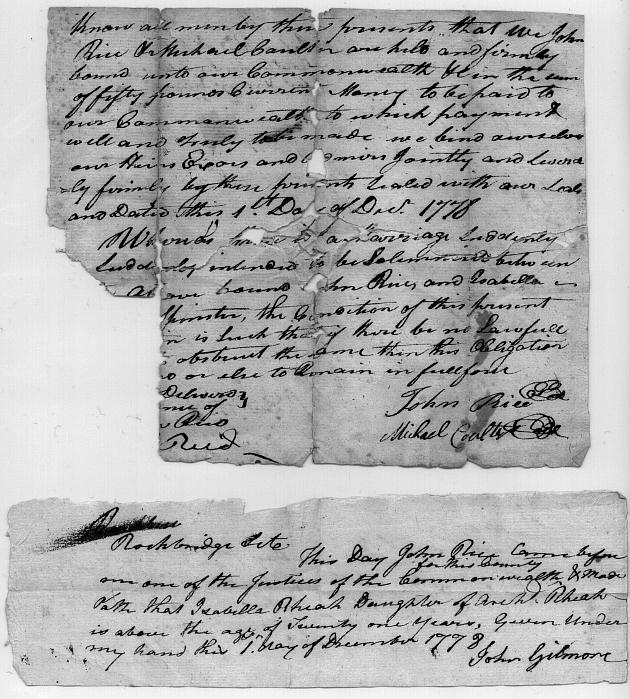 Know all men by these presents that We John
Rice & Michael Coulter are held and firmly
bound unto our Commonwealth &c in the sum
of fifty pounds Current Money to be paid to
our Commonwealth to which payment
well and truly to be made we bind ourselves
our Heirs Exors and Admirs Jointly and Severa
=ly firmly by these presents Sealed with our Seals
and Dated this 1st Day of Decr. 1778
Whereas there is a marriage Suddenly
Suddenly intended to be Solemnized between
above bound John Rice and Isabella
Spinster, the Condition of this present
is Such that if there be no Lawfull
obstruct the same then this Obligation
or else to Remain in full force
Deliverd
nce of
Reed
John Rice
Michael Coulter
Rockbridge Sct
This Day John Rice Came before
for this County
me one of the Justices of the Commonwealth & Made
Oath that Isabella Rheah Daughter of Archd. Rheah
is above the age of Twenty one Years, Given Under
my hand this 1st. day of December 1778
John Gilmore